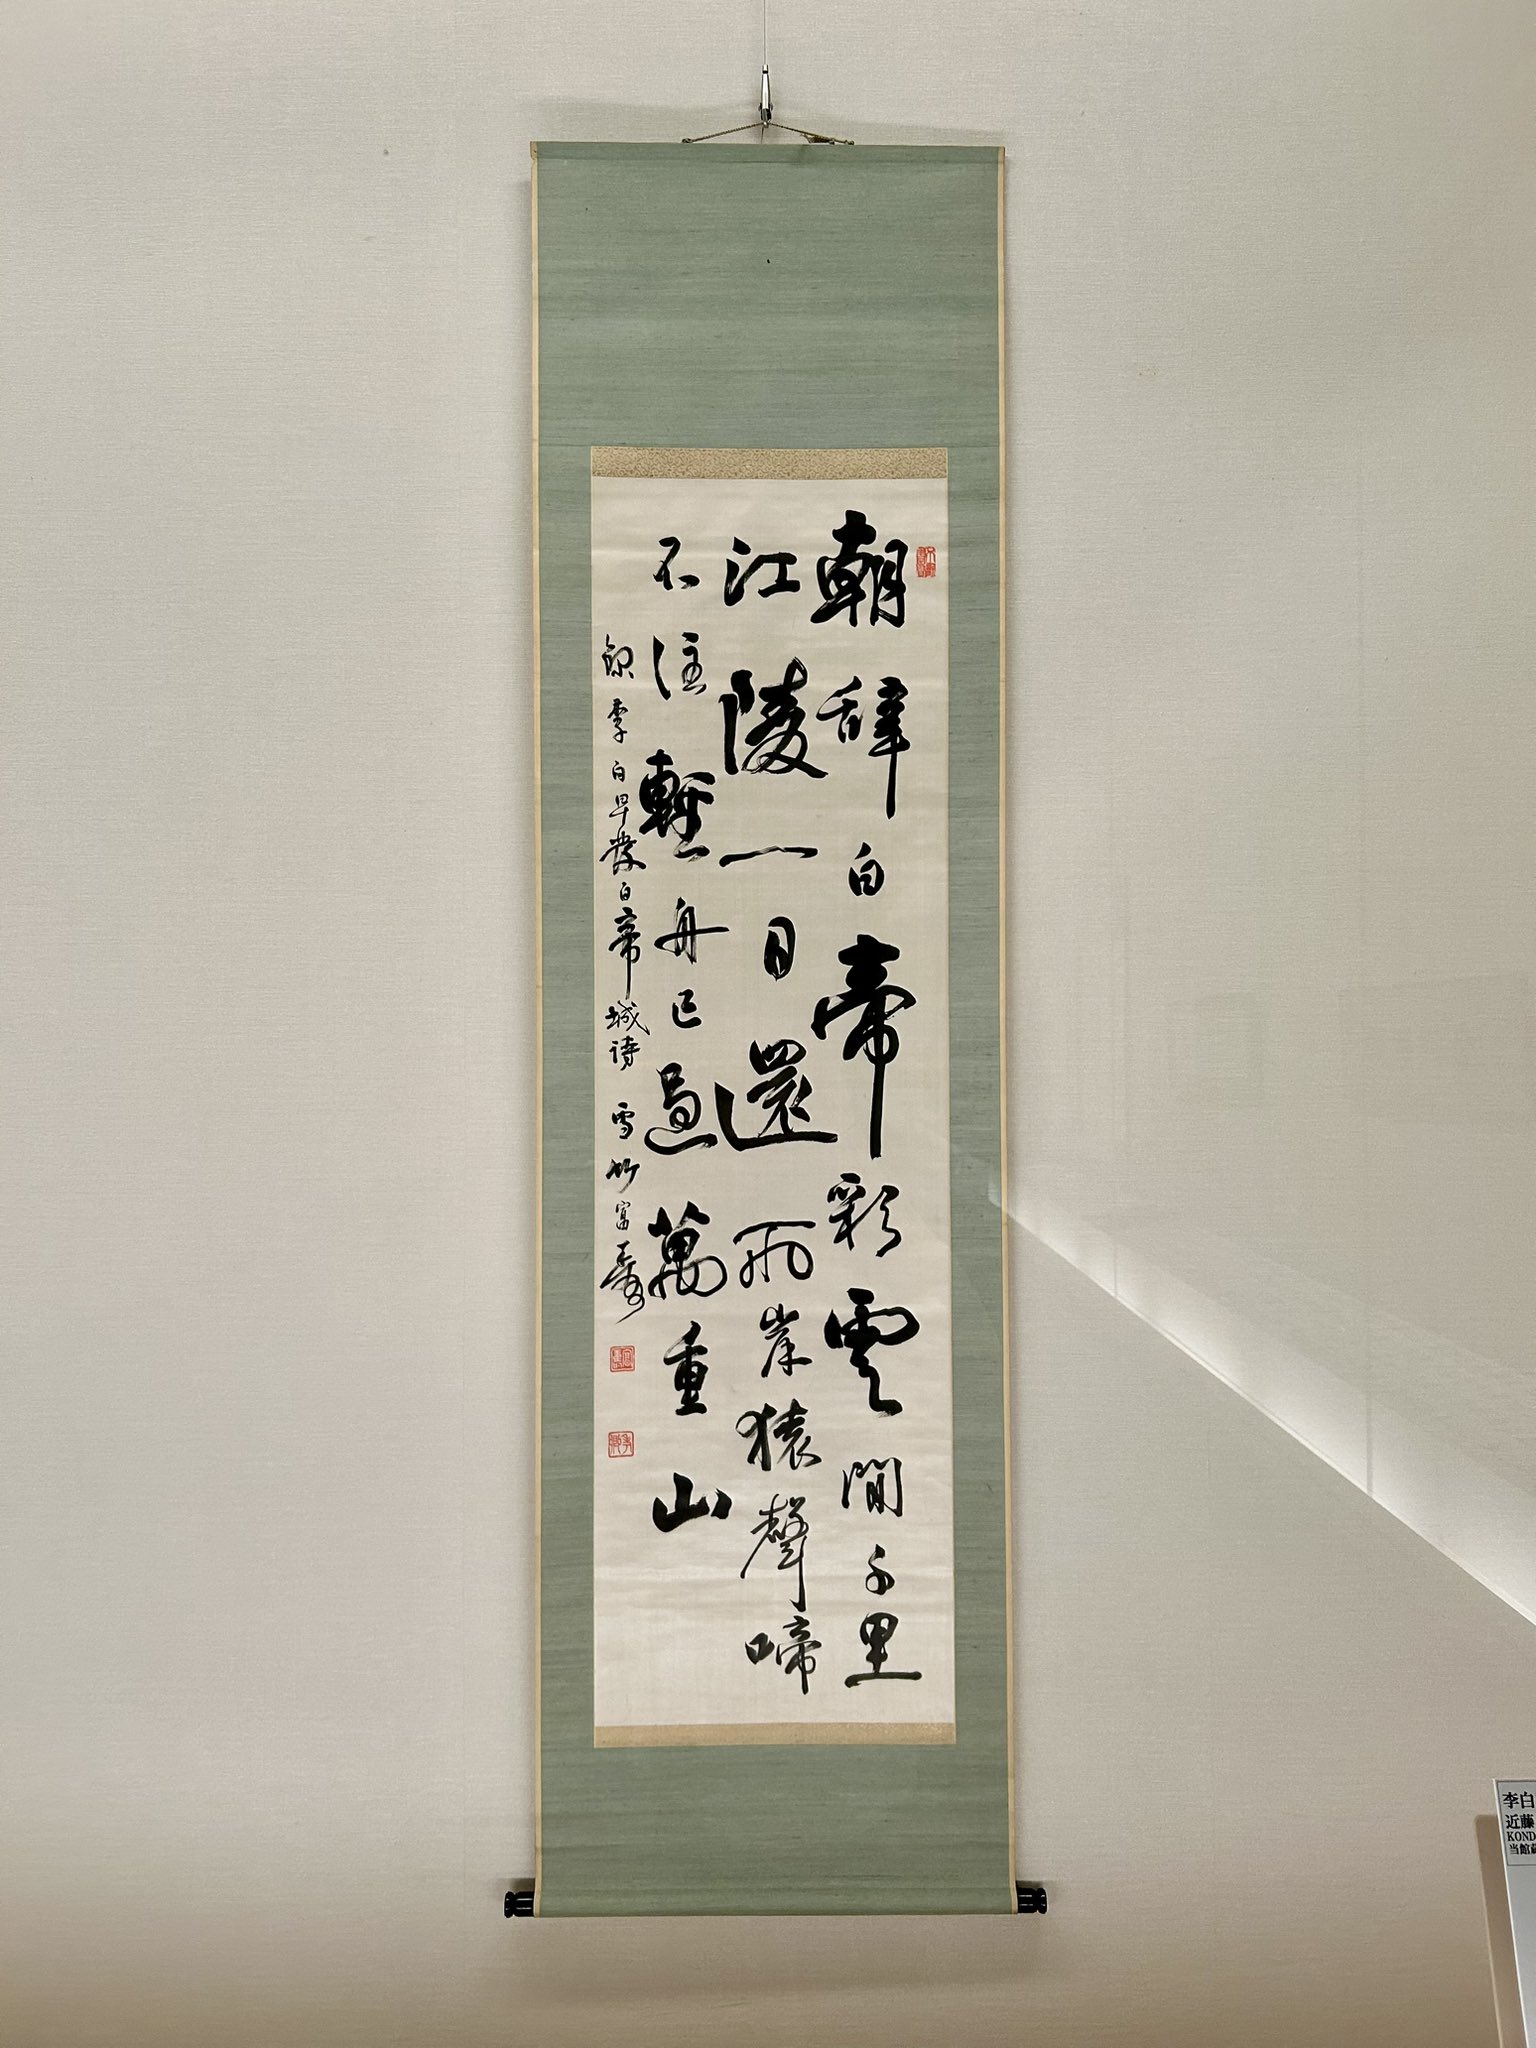 朝辞白帝彩雲間千里
江陵一日還兩岸猿聲啼
不住輕舟已過萬重山
録李白早發白帝城詩 雪竹富壽
李白
近藤
KOND
当館蔵